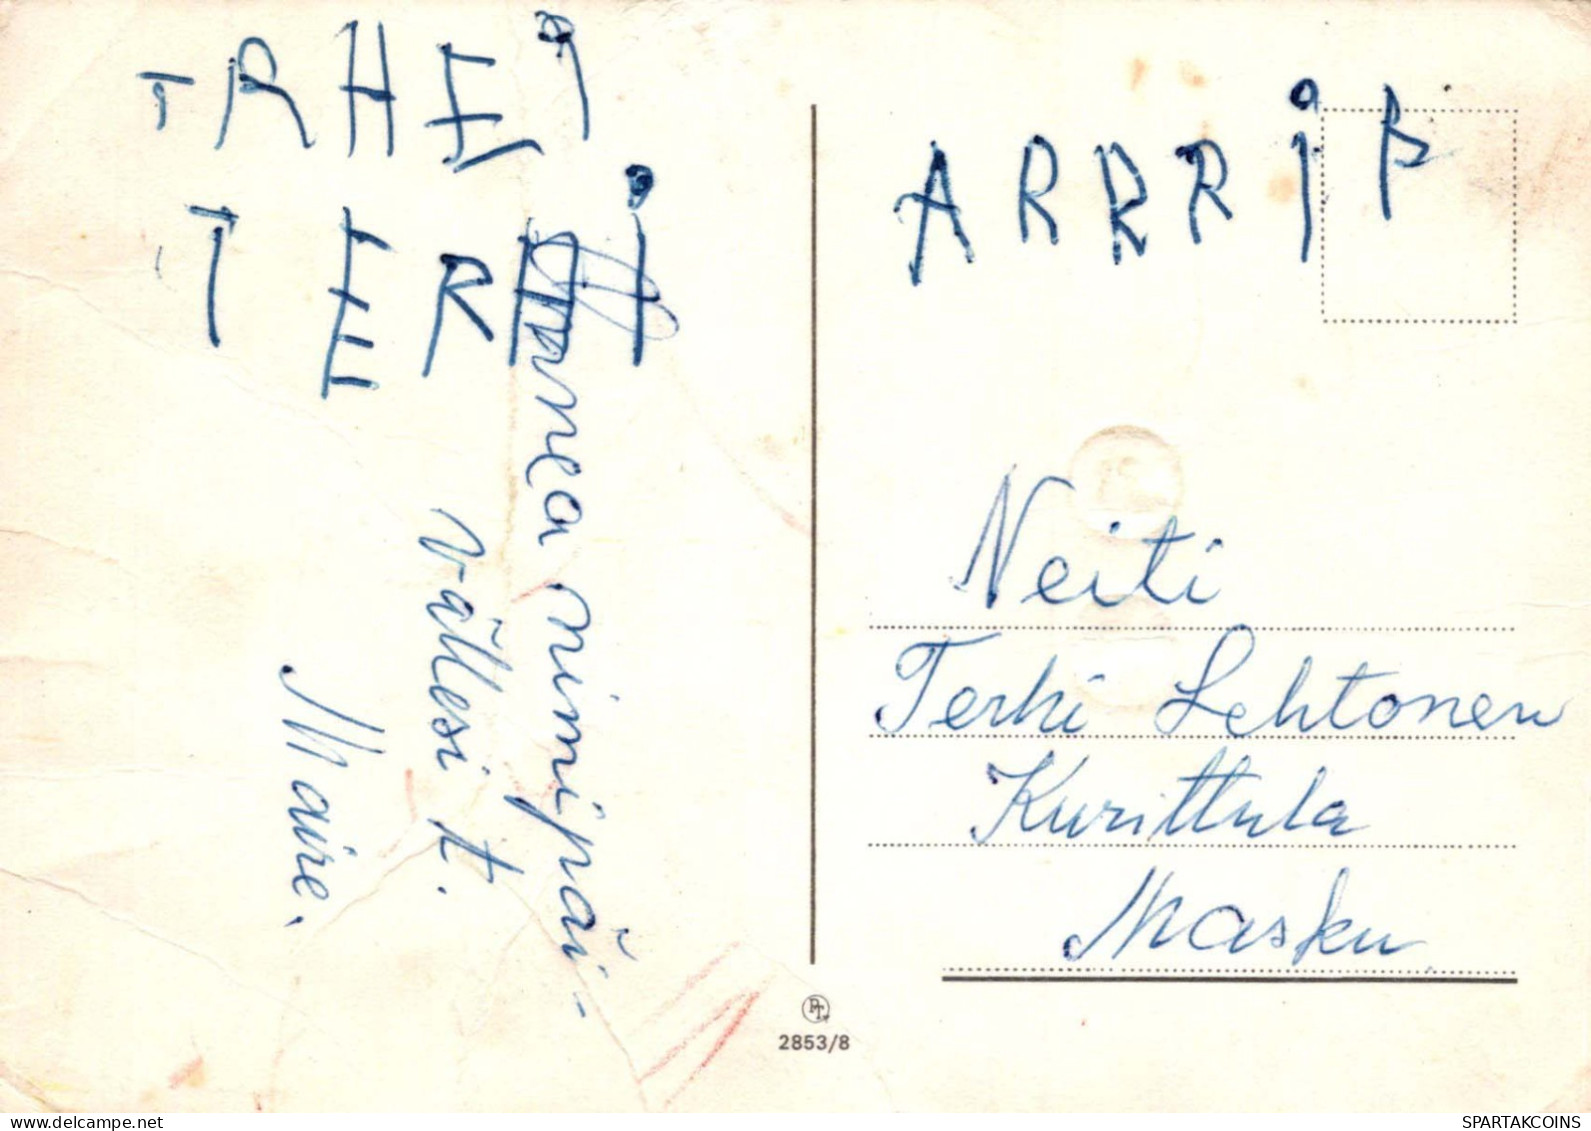 TRHEi
TERHi
Onnea nimipäi-
vällesi t.
Maire.
ARRRiP
Neiti
Terhi Lehtonen
Kurittula
Masku
PT
2853/8
SPARTAKCOINS